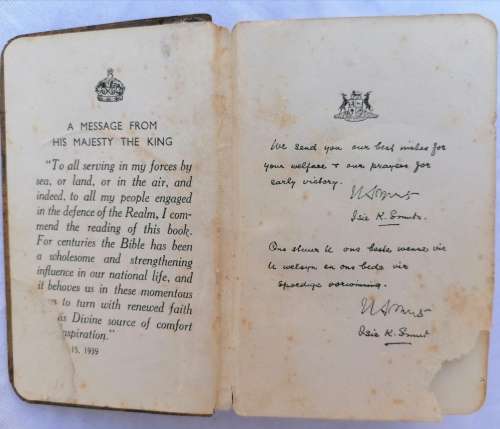 A MESSAGE FROM
HIS MAJESTY THE KING
"To all serving in my forces by
sea, or land, or in the air, and
indeed, to all my people engaged
in the defence of the Realm, I com-
mend the reading of this book.
For centuries the Bible has been
a wholesome and strengthening
influence in our national life, and
it behoves us in these momentous
to turn with renewed faith
Divine source of comfort
inspiration."
15, 1939
We send you our best wishes for
your welfare & our prayers for
early victory.
Isie K. Smuts.
Ons stuur U ons beste wense vir
U welsyn en ons bede vir
spoedige oorwinning.
Isie K. Smuts